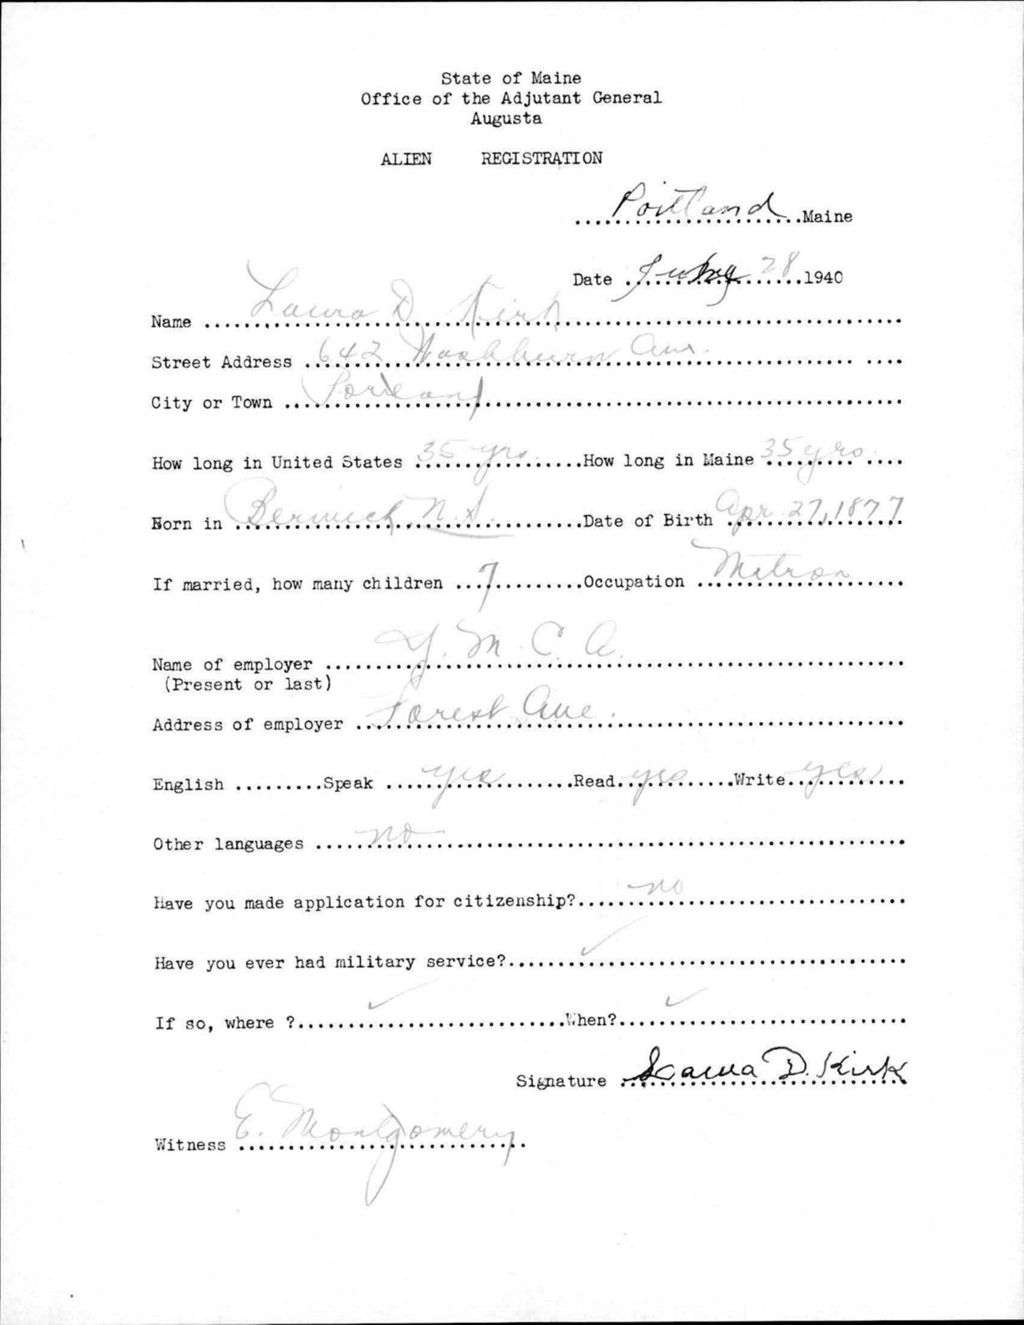 State of Maine
Office of the Adjutant General
Augusta
ALIEN REGISTRATION
Portland Maine
Date 28 1940
Name Laura D. Kirk
Street Address 642 Washburn Ave.
City or Town Portland
How long in United States 35 yrs How long in Maine 35 yrs
Born in Berwick N.S. Date of Birth Apr. 27, 1877
If married, how many children 7 Occupation Matron
Name of employer Y.M.C.A.
(Present or last)
Address of employer Forest Ave.
English Speak yes Read yes Write yes
Other languages no
Have you made application for citizenship? no
Have you ever had military service? ✓
If so, where ? ✓ When? ✓
Signature Laura D. Kirk
Witness E. Montgomery